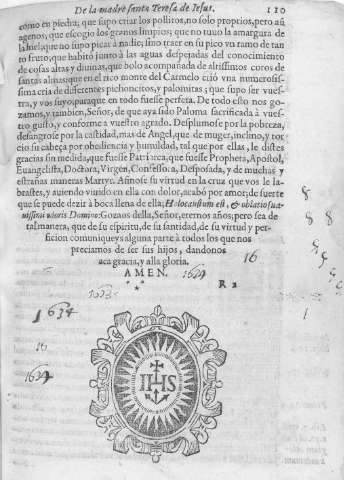 De la madre santa Teresa de Iesus. 110
como en piedra; que supo criar los pollitos, no solo proprios, pero aũ
agenos, que escogio los granos limpios; que no tuuo la amargura de
la hiel, que no supo picar à nadie; sino traer en su pico vn ramo de tan
to fruto, que habitò junto à las aguas despejadas del conocimiento
de cosas altas y diuinas, que bolo acompañada de altissimos coros de
santas almas, que en el rico monte del Carmelo criò vna numerosis-
sima cria de differentes pichoncitos, y palomitas; que supo ser vues-
tra, y vos suyo, para que en todo fuesse perfeta. De todo esto nos go-
zamos, y tambien, Señor, de que aya sido Paloma sacrificada à vues-
tro gusto, y conforme a vuestro agrado. Desplumose por la pobreza,
desangrose por la castidad, mas de Angel, que de muger, inclino, y tor-
cio su cabeça por obediencia y humildad, tal que por ellas, le distes
gracias sin medida, que fuesse Patriarca, que fuesse Propheta, Apostol,
Euangelista, Doctora, Virgen, Confessora, Desposada, y de muchas y
estrañas maneras Martyr. Assimose su virtud en la cruz que vos le la-
brastes, y auiendo viuido en ella con dolor, acabó por amor; de suerte
que se puede dezir à boca llena de ella; Holocaustum est, & oblatio sua-
uissimi odoris Domino: Gozaos della, Señor, eternos años; pero sea de
tal manera, que de su espiritu, de su santidad, de su virtud y per-
ficion comuniqueys alguna parte à todos los que nos
preciamos de ser sus hijos, dandonos
aca gracia, y alla gloria.
16
AMEN. 1624
R 2
1634
16
1624
IHS